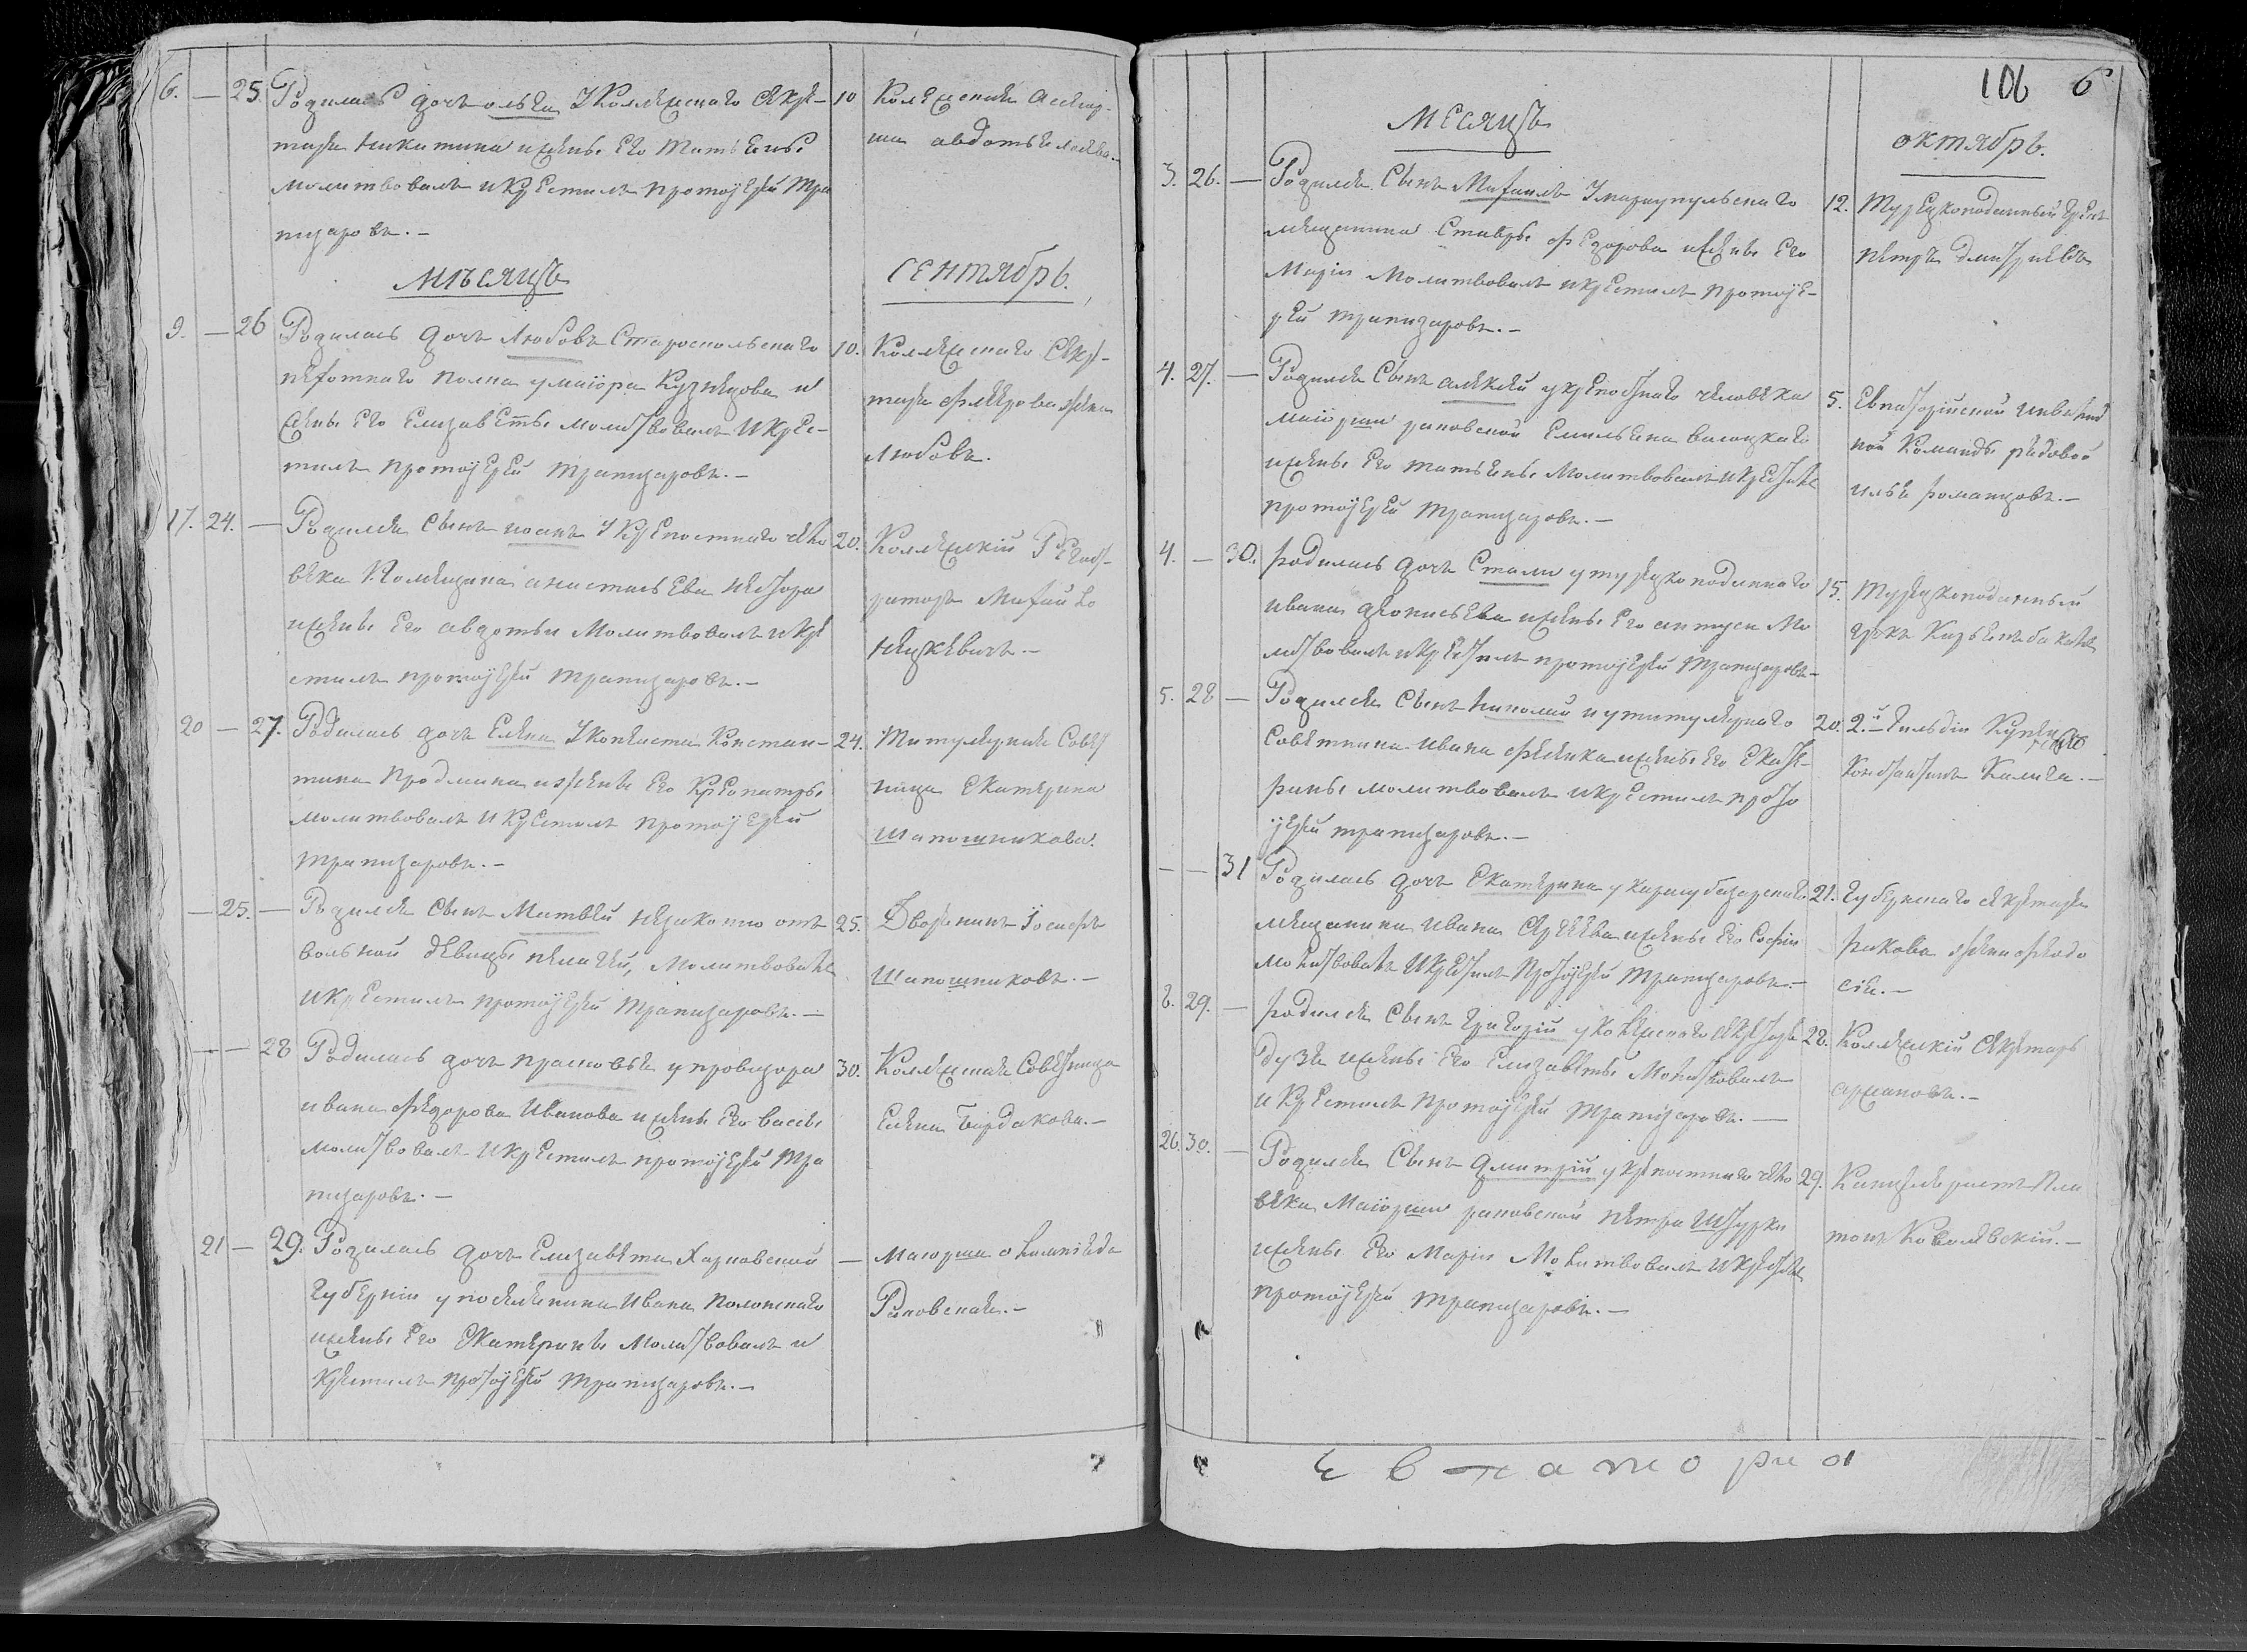 6. — 25. Родилась дочь ольга у Коллежскаго секре- 10
таря Никитина и жены Его Татьяны
молитвовалъ и крестилъ протоіерей Тра
пизаровъ. —
авдотья
Мѣсяцъ
Сентябрь.
9. — 26 Родилась дочь Любовь Староскольскаго 10.
пехотнаго полка у маіора Кузнецова и
жены Его Елизаветы молитвовалъ и кре-
стилъ протоіерей Трапизаровъ. —
Коллежскаго Секре-
таря жена
Любовь.
17. 24. — Родился сынъ иоанъ у крепостнаго чело 20.
века Помещика анастасьева Нестора
и жены Его авдотьи Молитвовалъ и кре
стилъ протоіерей Трапизаровъ. —
Коллежскій Регист-
раторъ Михайло
Нецкевичъ. —
20 — 27. Родилась дочь Елена у Копеиста Констан- 24.
тина Продмина и жены Его Клеопатры
молитвовалъ и крестилъ протоіерей
Трапизаровъ. —
Титулярная Совет
ница Екатерина
Шапошникова.
— 25. — Родился сынъ Матвей незаконно отъ 25.
вольной девицы Молитвовалъ
и крестилъ протоіерей Трапизаровъ. —
Дворянинъ Іосифъ
Шапошниковъ. —
— — 28 Родилась дочь прасковья у провизора 30.
ивана Федорова Иванова и жены Его Вассы
молитвовалъ и крестилъ протоіерей Тра
пизаровъ. —
Коллежская Советница
Елена Бардакова. —
21 — 29. Родилась дочь Елизавета Харковской —
Губерніи у поселенина Ивана Полонскаго
и жены Его Екатерины Молитвовалъ и
крестилъ протоіерей Трапизаровъ. —
Маіорша олимпіада
Раковская. —
106 6
Месяцъ
октябрь.
3. 26. — Родился Сынъ Михаилъ у мариупульскаго 12.
мещанина Ставры Федорова и жены Его
Маріи Молитвовалъ и крестилъ протоіе-
рей Трапизаровъ. —
Турецкоподанный Грекъ
петръ Дмитриевъ
4. 27. — Родился Сынъ алексей у крепостнаго человека 5.
маіорши раковской Емильяна
и жены Его татьяны Молитвовалъ и крестилъ
протоіерей Трапизаровъ. —
Евпаторійской инвалид
ной Команды рядовой
илья романцовъ. —
4. — 30. родилась дочь Стами у турецко подданнаго 15.
ивана и жены Его Мо
литвовалъ и крестилъ протоіерей Трапизаровъ —
Турецкоподанный
грекъ
5. 28 — Родился Сынъ Николай у титулярнаго 20.
Советника Ивана и жены Его Екате-
рины молитвовалъ и крестилъ прото
іерей трапизаровъ. —
2й Гильдіи
Константинъ Калига. —
— — 31 Родилась дочь Екатерина у карасубазарскаго 21.
мещанина Ивана Сергеева и жены Его Софіи
Молитвовалъ и крестилъ Протоіерей Трапизаровъ. —
Губернскаго секретаря
Рыкова жена Феодо
сія. —
8. 29. — родился Сынъ Григорій у Колежскаго секретаря 28.
и жены Его Елизаветы Молитвовалъ
и крестилъ протоіерей Трапизаровъ. —
Коллежскій секретарь
аржановъ. —
26. 30. — Родился Сынъ Дмитрій у крепостнаго чело 29.
века Маіорши раковской петра Штурки
и жены Его Маріи Молитвовалъ и крестилъ
протоіерей Трапизаровъ. —
Канцеляристъ Пла
тонъ Ковалевскій. —
Евпаториа